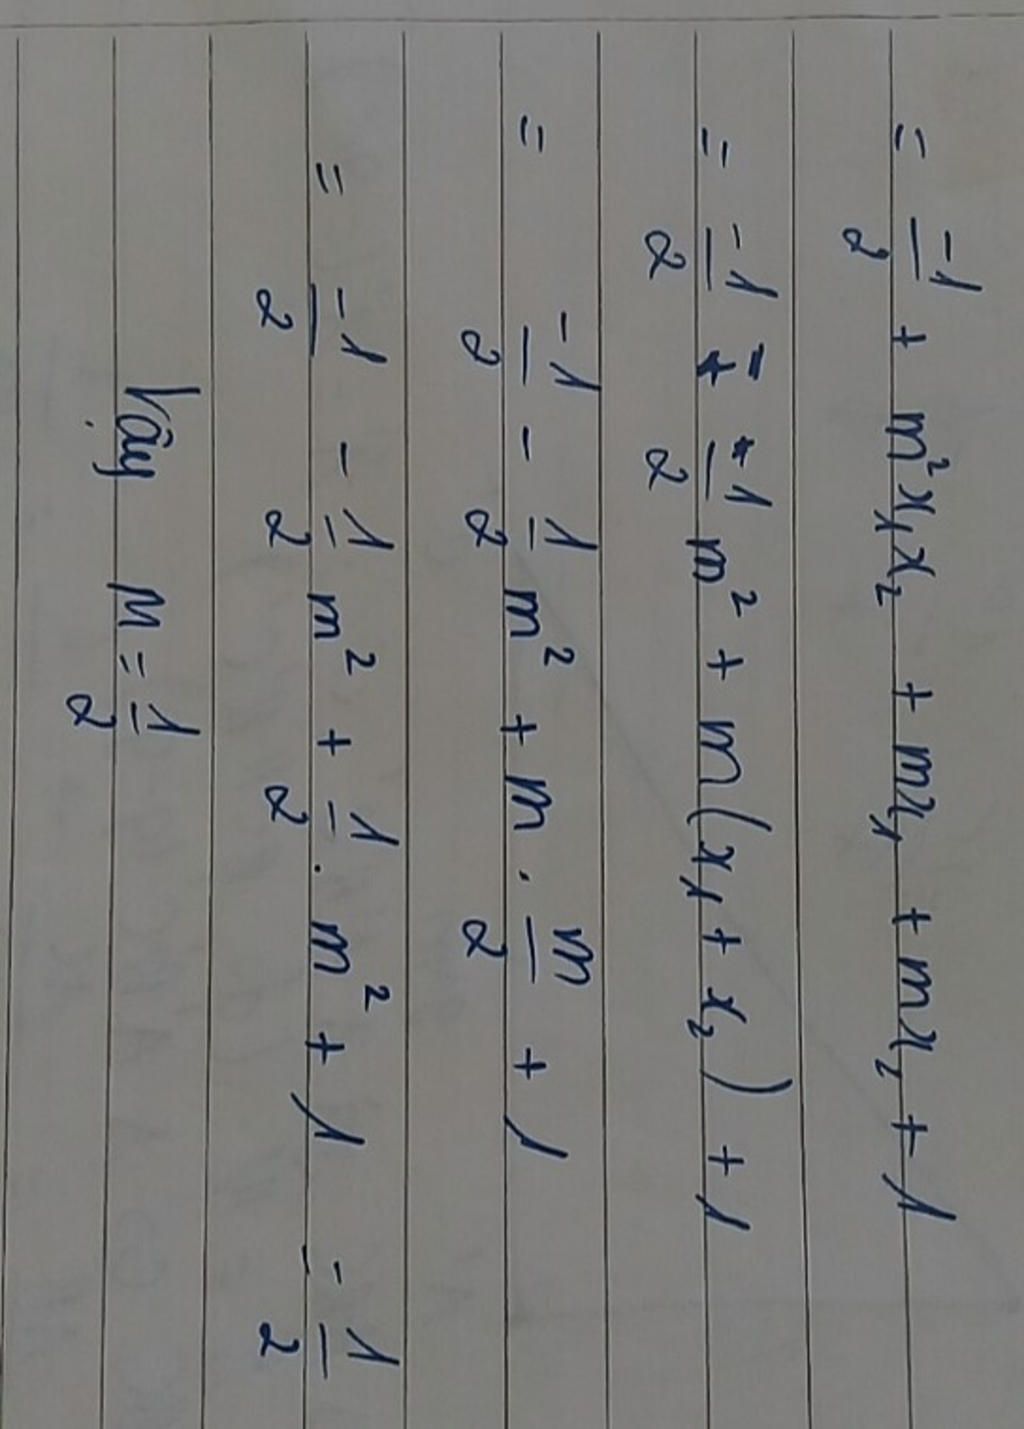 = -1/2 + m²x₁x₂ + mx₁ + mx₂ + 1
= -1/2 - 1/2 m² + m(x₁ + x₂) + 1
= -1/2 - 1/2 m² + m . m/2 + 1
= -1/2 - 1/2 m² + 1/2 . m² + 1 = 1/2
Vậy M = 1/2